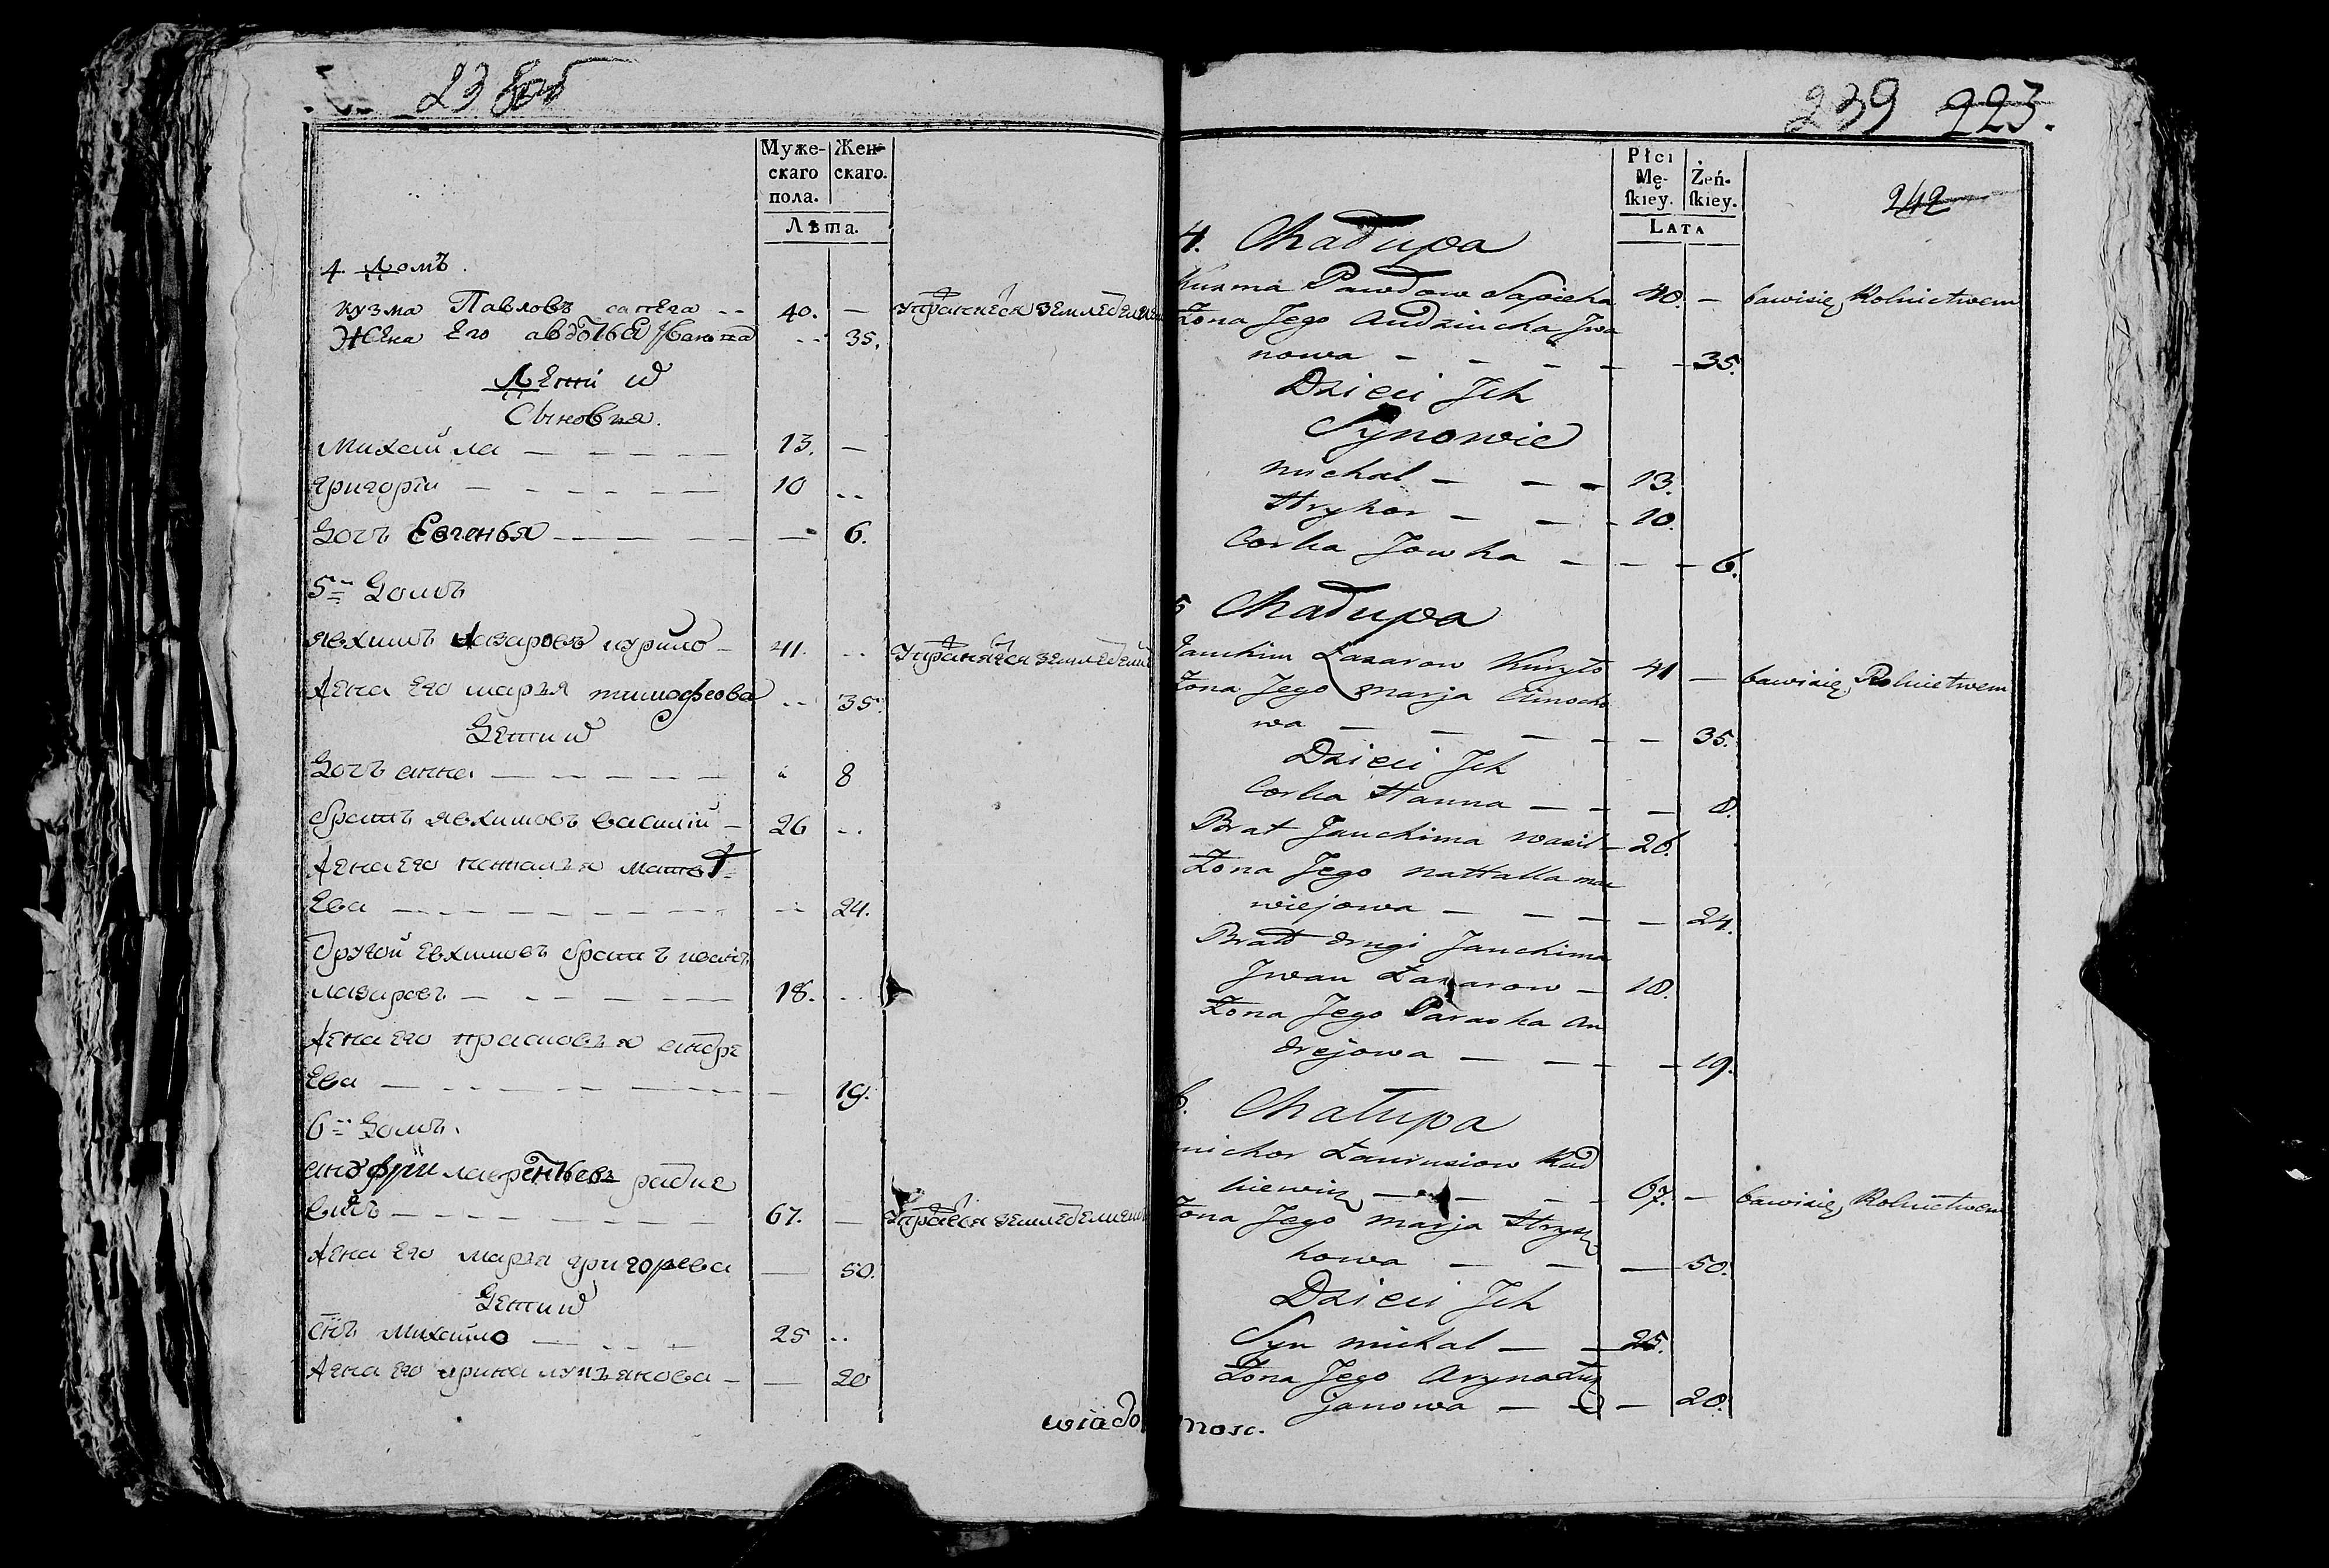 Муже-
скаго
пола.
Жен-
скаго.
Лѣта.
4. Домъ.
кузма Павловъ сапега -- 40. —
Жена Его авдотья Иванова -- 35.
Дети и
Сыновья.
Михайла — 13. —
григорій — 10 --
Дочь Евгенья — 6.
5й Домъ
явхимъ Лазаровъ курило - 41. --
Жена Его марья тимофеова -- 35.
Дети и
Дочь анна — 8
братъ явхимовъ василій - 26 --
Жена Его наталья матвѣ-
Ева — 24.
Другой Евхимовъ братъ иванъ
лазаровъ — 18. --
Жена Его прасковья андре
Ева — 19.
6й Домъ.
лаврентьевъ радке
вичъ — 67. —
Жена Его марья григорева — 50.
Дети и
сынъ Михайло — 25 --
Жена Его ирина лукьянова — 20
wiado
239 223.
242
Płci
Mę-
ſkiey.
Żeń-
ſkiey.
LATA
4. Chałupa
Kuzma Pawłow Sapieha 40. — bawisię Rolnictwem
Żona Jego Audziucha Jwa
nowa — 35.
Dzieci Jch
Synowie
michal — 13.
Hryhor — 10.
Corka Jowka — 6.
5 Chałupa
Jauchim Łazarow Kuryło 41 — bawisię Rolnictwem
Żona Jego marja cimocho
wa — 35.
Dzieci Jch
Corka Hanna — 8.
Brat Jauchima wasil — 26.
Żona Jego nattalla ma
wiejowa — 24.
Brat drugi Jauchima
Jwan Łazarow — 18.
Żona Jego Paraska An
drejowa — 19.
6. Chałupa
michor Ławrusiow Rad
kiewicz — 67. — bawisię Rolnictwem
Żona Jego marja Hryh
horowa — 50.
Dzieci Jch
Syn michal — 25.
Żona Jego Aryna Łuk
janowa — 20.
mosc.